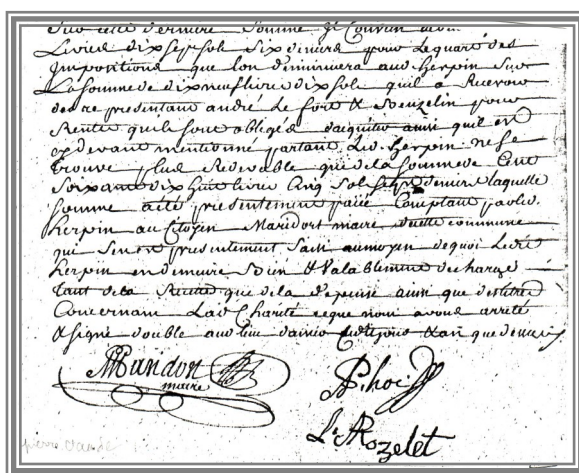 Sur cette derniere Somme Il Convien
Livres dix sept sols Six deniers pour Le quart des
Impositions que lon diminuera aud herpin Sur
La Somme de dix neuf livre dix sols quil a Recevoir
des re presentant andré Le fort & Benzelin pour
Rente quils sont obligés daquiter ainsi quil en
cy devant mentionné partant Led. herpin ne se
trouve plus Redevable que de la Somme de Cent
Soixante dix huit livres Cinq Sols deniers laquelle
Somme a été presentement païée Comptant par led.
herpin au Citoyen maire commune
qui Sen en presentement Saisi au moyen de quoi Ledit
herpin en demeure bien & Valablement decharge
tant de la Recette que de la depense ainsi que des titres
Concernant Lad Charité ce que nous avons arreté
& Signé double aud lieu jours & an que dessus
maire
Le Rozelet
pierre